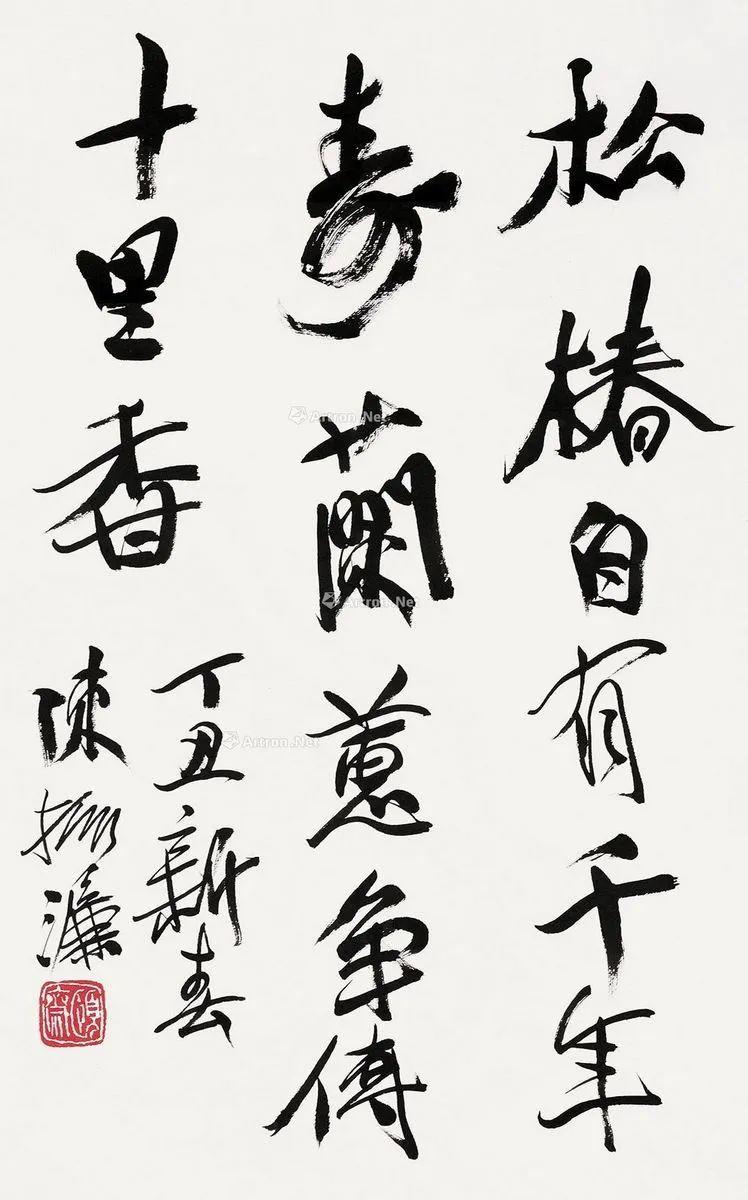 松椿自有千年
壽蘭蕙争傳
十里香
丁丑新春
陳振濂
頤齋
Artron.Net
Artron.Net
Artron.Net